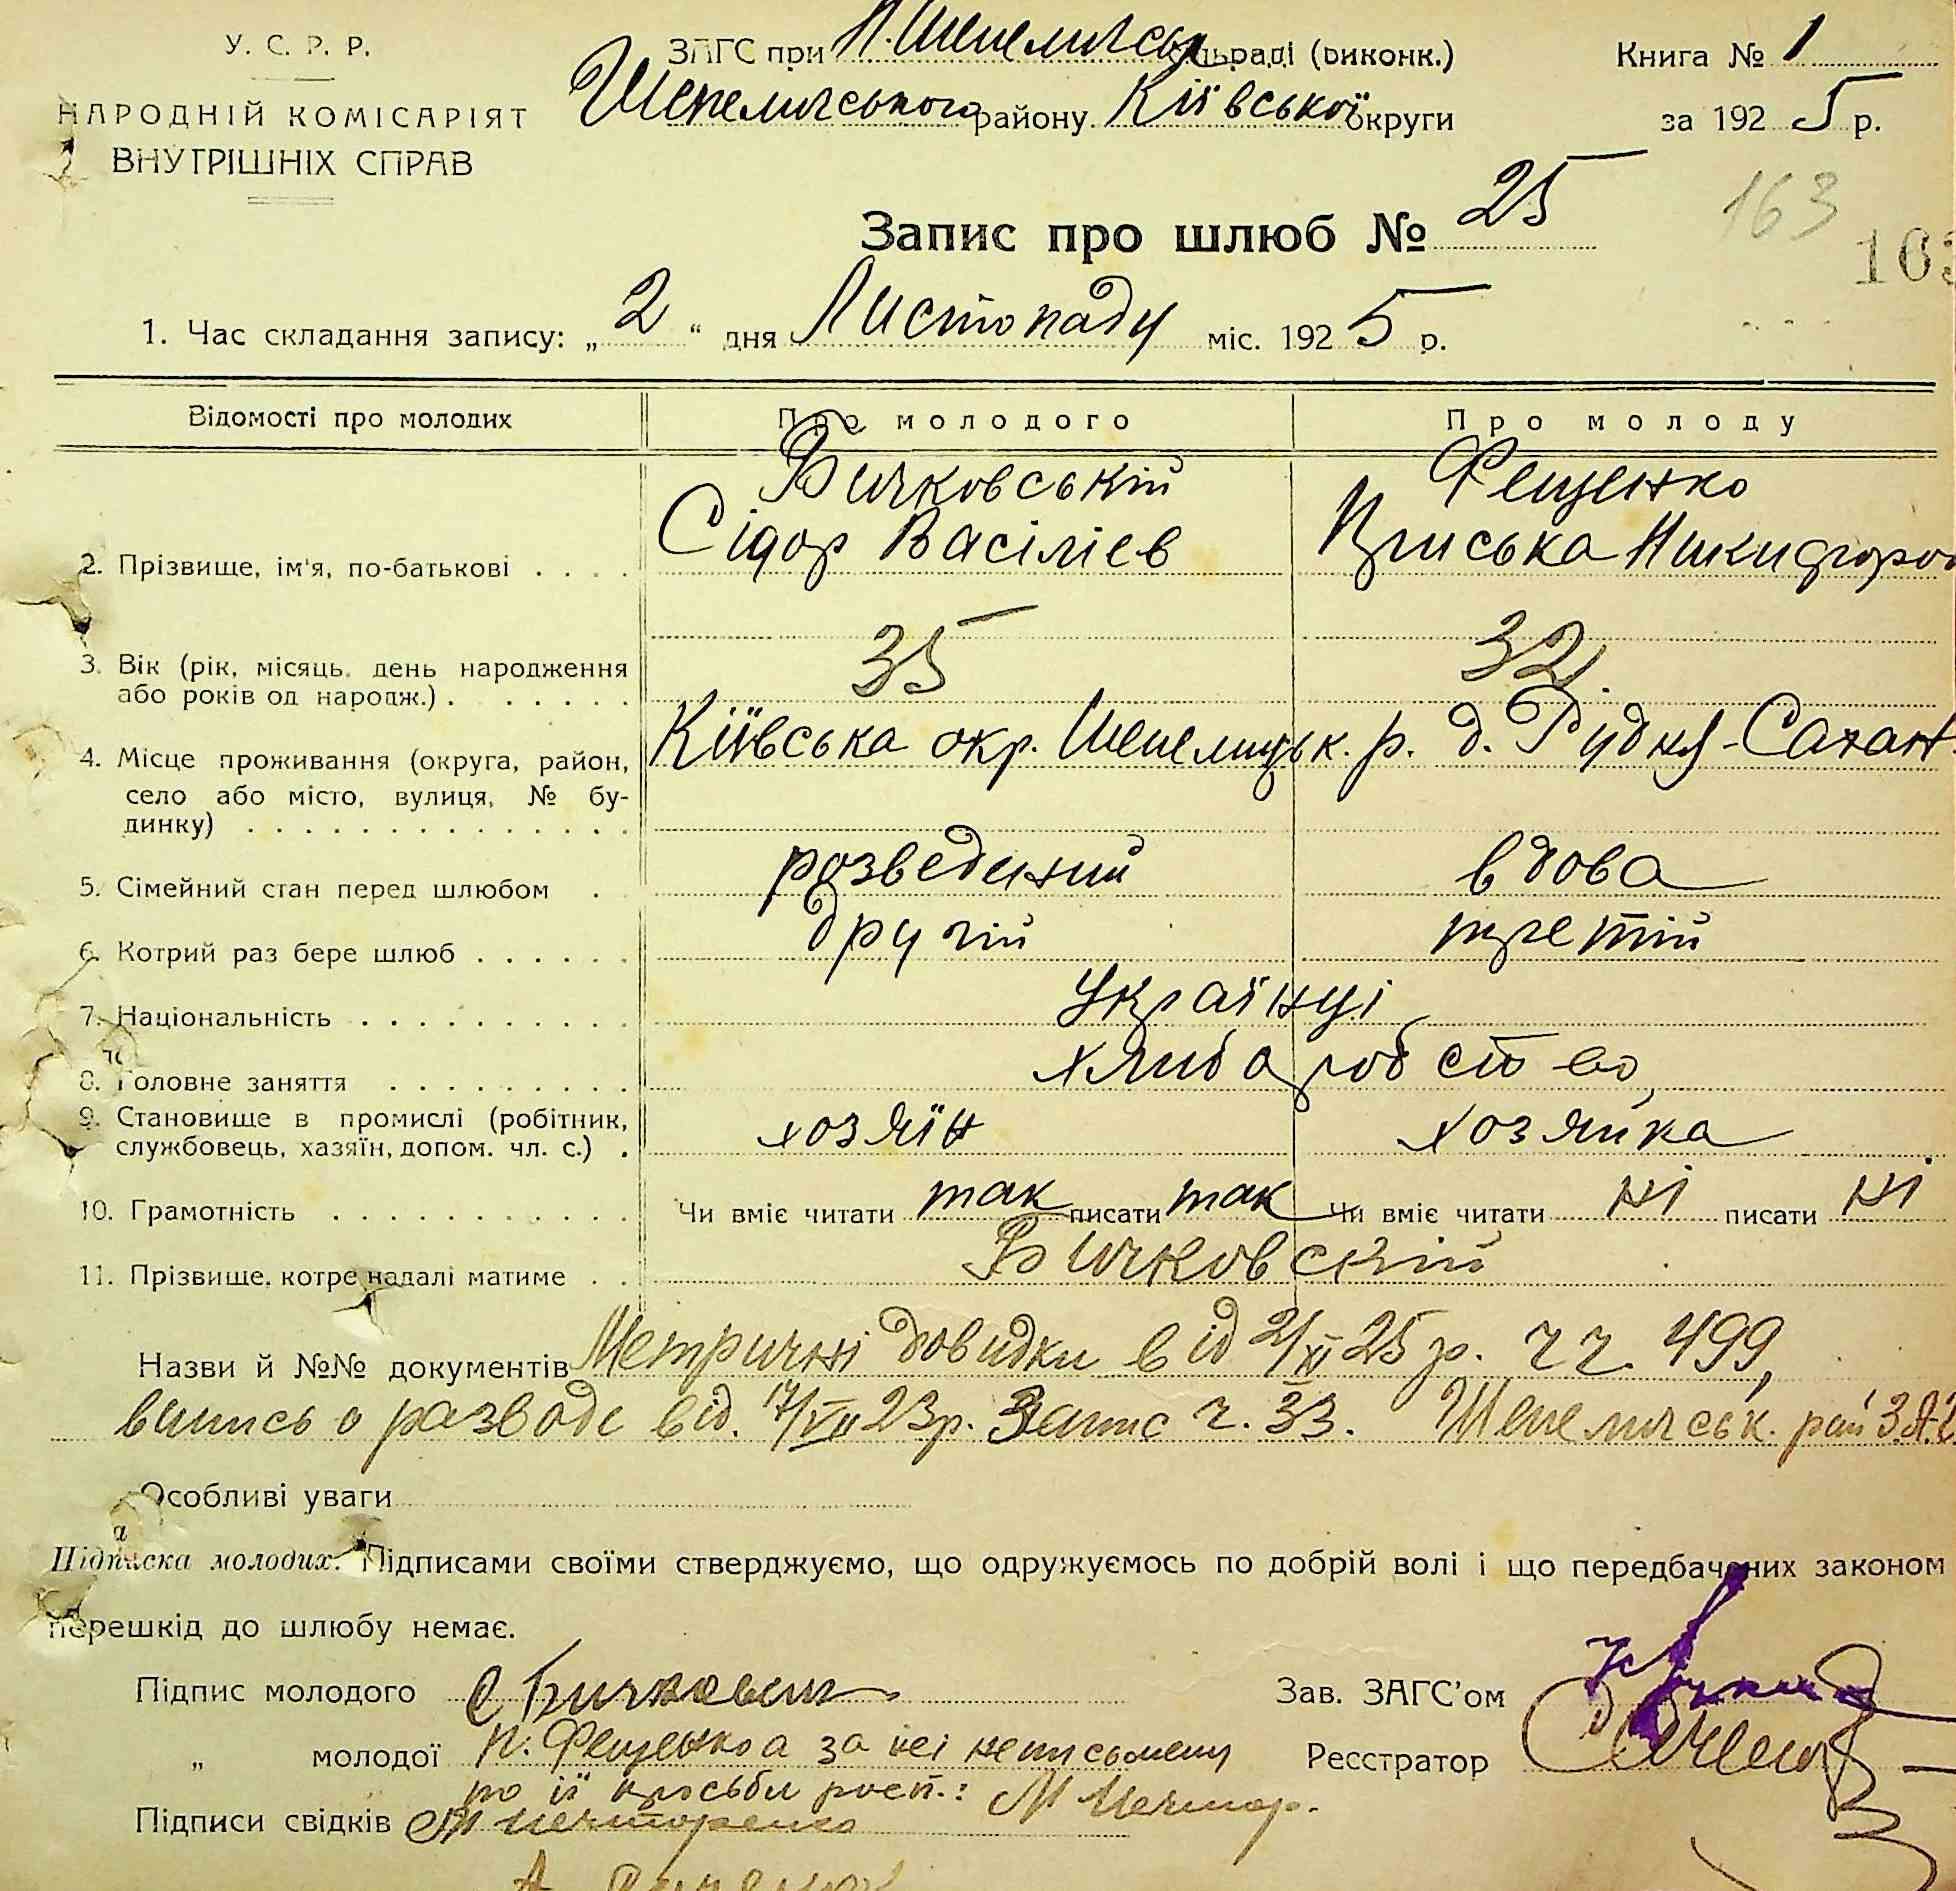 У. С. Р. Р.
НАРОДНІЙ КОМІСАРІЯТ
ВНУТРІШНІХ СПРАВ
ЗАГС при Н.Шепелическ сільраді (виконк.)
Шепеличського району Київської округи
Книга № 1
за 1925 р.
163
163
Запис про шлюб № 25
1. Час складання запису: „2“ дня Листопаду міс. 1925 р.
Відомості про молодих Про молодого Про молоду
Бичковський Фещенко
2. Прізвище, ім'я, по-батькові Сідор Васілієв Пріська Никифоров
3. Вік (рік, місяць, день народження
або років од народж.) 35 32.
4. Місце проживання (округа, район, Київська окр. Шепелицьк. р. д. Рудня-Сахан.
село або місто, вулиця, № бу-
динку)
5. Сімейний стан перед шлюбом розведений вдова
6. Котрий раз бере шлюб другій третій
7. Національність Українці
8. Головне заняття хлибаробство
9. Становище в промислі (робітник,
службовець, хазяїн, допом. чл. с.) хозяїн хозяйка
10. Грамотність Чи вміє читати так писати так Чи вміє читати ні писати ні
11. Прізвище, котре надалі матиме Бичковскій
Назви й №№ документів Метричні довидки від 2/XI 25 р. чч. 499,
випись о разводе від. 17/VII 23р. Запис ч. 33. Шепеличськ. рай З.А.Г.
Особливі уваги
Підписка молодих. Підписами своїми стверджуємо, що одружуємось по добрій волі і що передбачених законом
перешкід до шлюбу немає.
Підпис молодого С Бичковски
Зав. ЗАГС'ом
„ молодої П. Фещенко а за неі неписьмену
Реєстратор
по її просьби росп.:
Підписи свідків